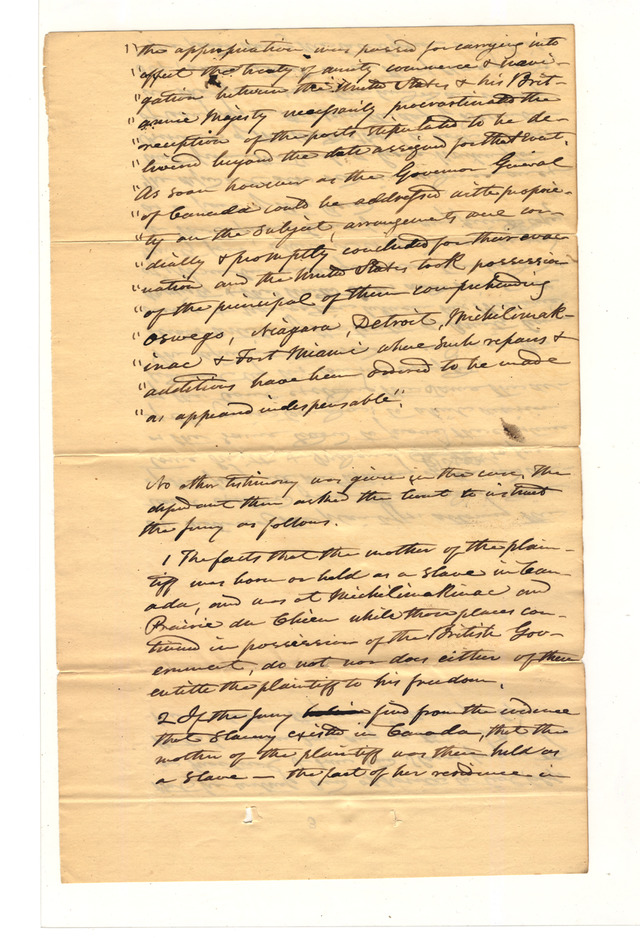 "the appropriation was passed for carrying into
"effect the treaty of amity commerce & navi-
"gation between the United States & his Brit-
"annic Majesty necessarily procrastinated the
"reception of the posts stipulated to be de-
"livered beyond the date assigned for that event.
"As soon however as the Governor General
"of Canada could be addressed with proprie-
"ty on the subject, arrangements were cor-
"dially & promptly concluded for their evac-
"uation and the United States took possession
"of the principal of them comprehending
"Oswego, Niagara, Detroit, Michilimak-
"inac & Fort Miami where such repairs &
"additions have been ordered to be made
"as appeared indespensable".
No other testimony was given in the case, The
defendant then asked the Court to instruct
the Jury as follows.
1 The facts that the mother of the plain-
tiff was born or held as a Slave in Can-
ada, and was at Michilimakinac and
Prairie du Chien while those places con-
tinued in possession of the British Gov-
ernment, do not nor does either of them
entitle the plaintiff to his freedom.
2 If the Jury find from the evidence
that Slavery existed in Canada, that the
mother of the plaintiff was there held as
a Slave – the fact of her residence in
3